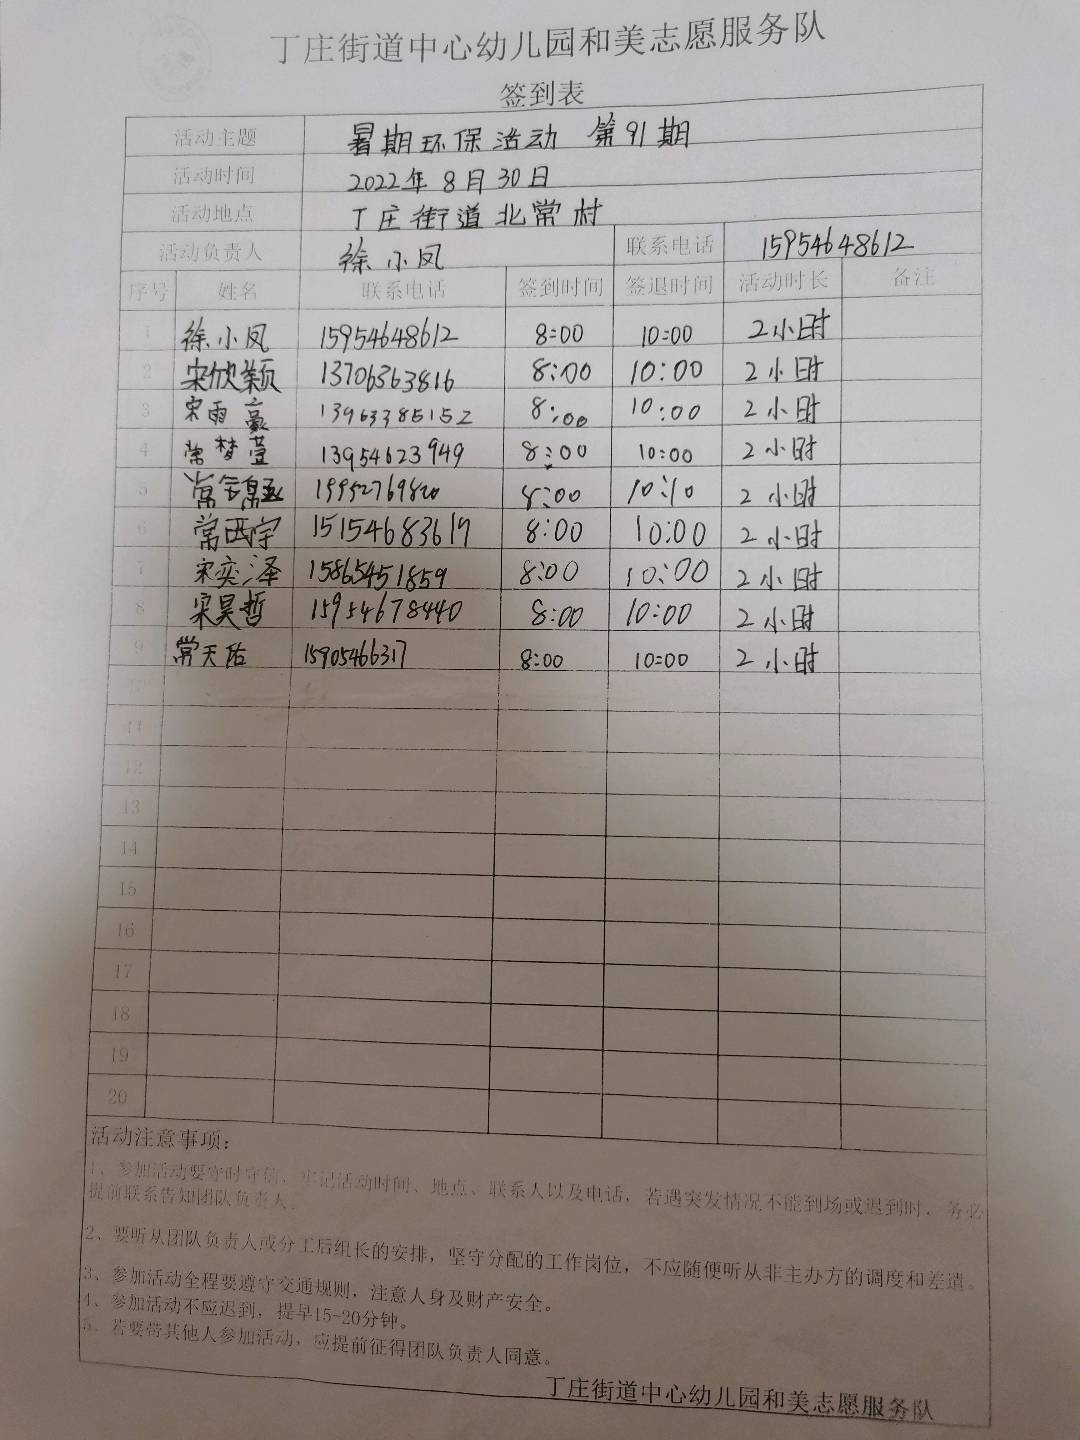 丁庄街道中心幼儿园和美志愿服务队
签到表
活动主题 暑期环保活动 第91期
活动时间 2022年8月30日
活动地点 丁庄街道北常村
活动负责人 徐小凤 联系电话 15954648612
序号 姓名 联系电话 签到时间 签退时间 活动时长 备注
1 徐小凤 15954648612 8:00 10:00 2小时
2 宋欣颖 13706363816 8:00 10:00 2小时
3 宋雨豪 13963385152 8:00 10:00 2小时
4 常梦萱 13954623949 8:00 10:00 2小时
5 8:00 10:10 2小时
6 常西宇 15154683619 8:00 10:00 2小时
7 宋奕泽 15865451859 8:00 10:00 2小时
8 宋昊哲 15954678440 8:00 10:00 2小时
9 常天佑 15905466317 8:00 10:00 2小时
10
11
12
13
14
15
16
17
18
19
20
活动注意事项：
1、参加活动要守时守信，牢记活动时间、地点、联系人以及电话，若遇突发情况不能到场或迟到时，务必
提前联系告知团队负责人。
2、要听从团队负责人或分工后组长的安排，坚守分配的工作岗位，不应随便听从非主办方的调度和差遣。
3、参加活动全程要遵守交通规则，注意人身及财产安全。
4、参加活动不应迟到，提早15-20分钟。
5、若要带其他人参加活动，应提前征得团队负责人同意。
丁庄街道中心幼儿园和美志愿服务队